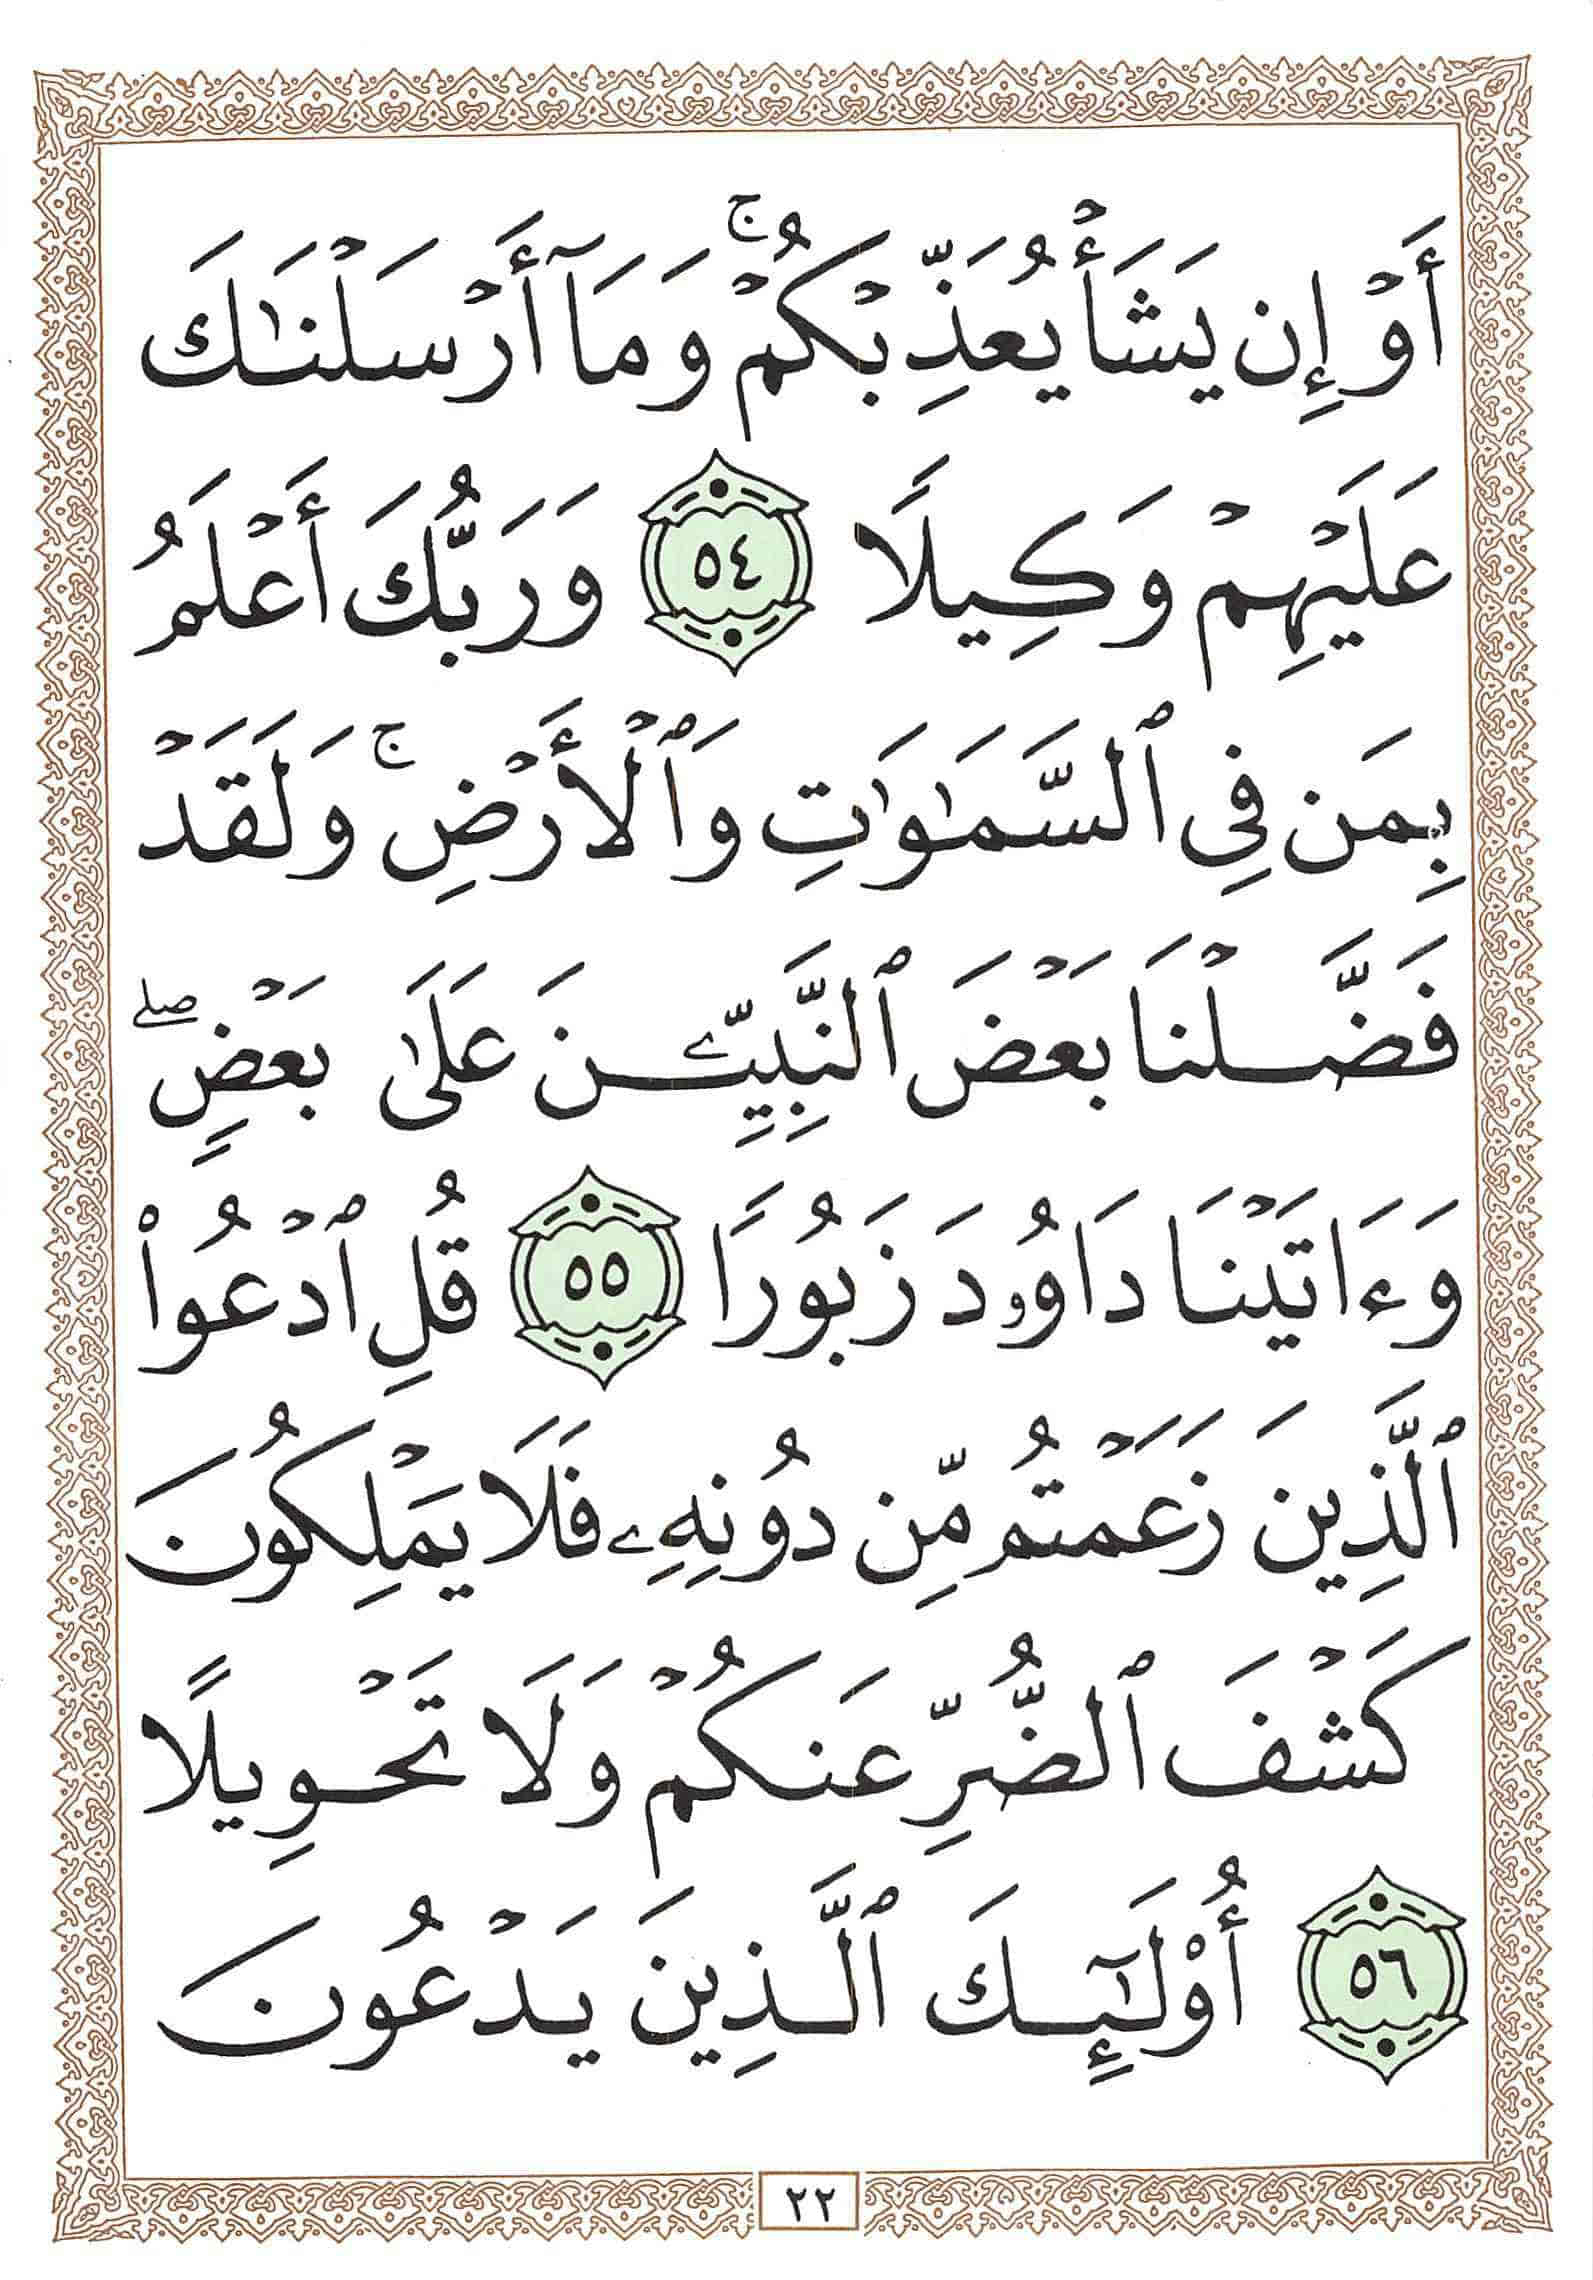 أَوْ إِن يَشَأْ يُعَذِّبْكُمْ ۚ وَمَآ أَرْسَلْنَٰكَ
عَلَيْهِمْ وَكِيلًا ٥٤ وَرَبُّكَ أَعْلَمُ
بِمَن فِى ٱلسَّمَٰوَٰتِ وَٱلْأَرْضِ ۚ وَلَقَدْ
فَضَّلْنَا بَعْضَ ٱلنَّبِيِّۦنَ عَلَىٰ بَعْضٍ ۖ
وَءَاتَيْنَا دَاوُۥدَ زَبُورًا ٥٥ قُلِ ٱدْعُوا۟
ٱلَّذِينَ زَعَمْتُم مِّن دُونِهِۦ فَلَا يَمْلِكُونَ
كَشْفَ ٱلضُّرِّ عَنكُمْ وَلَا تَحْوِيلًا
٥٦ أُو۟لَٰٓئِكَ ٱلَّذِينَ يَدْعُونَ
٢٢